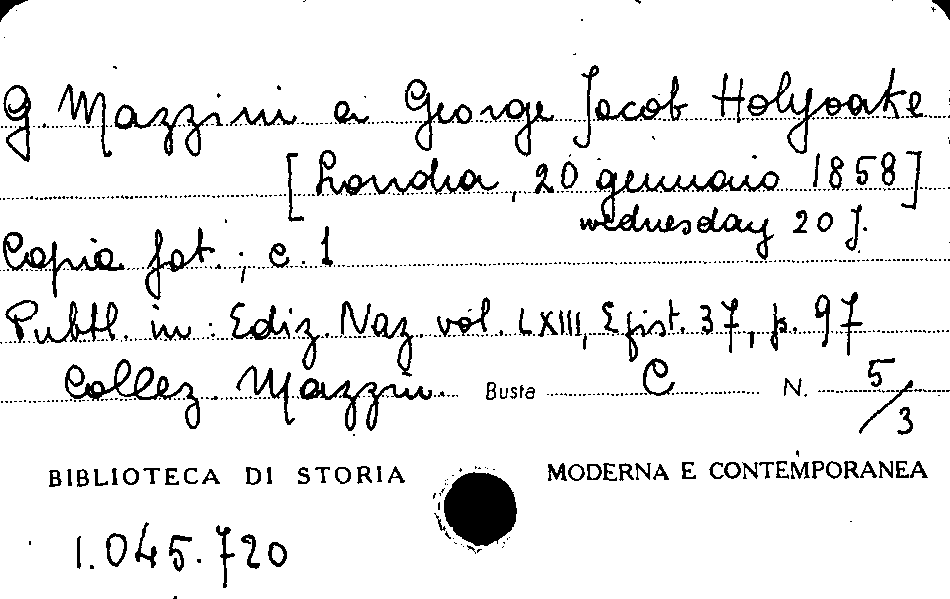 G. Mazzini a George Jacob Holyoake
[Londra, 20 gennaio 1858]
wednesday 20 J.
Copia fot.; c. 1
Pubbl. in: Ediz. Naz. vol. LXIII, Epist. 37, p. 97
Collez. Mazzin. Busta C N. 5/3
BIBLIOTECA DI STORIA MODERNA E CONTEMPORANEA
1.045.720